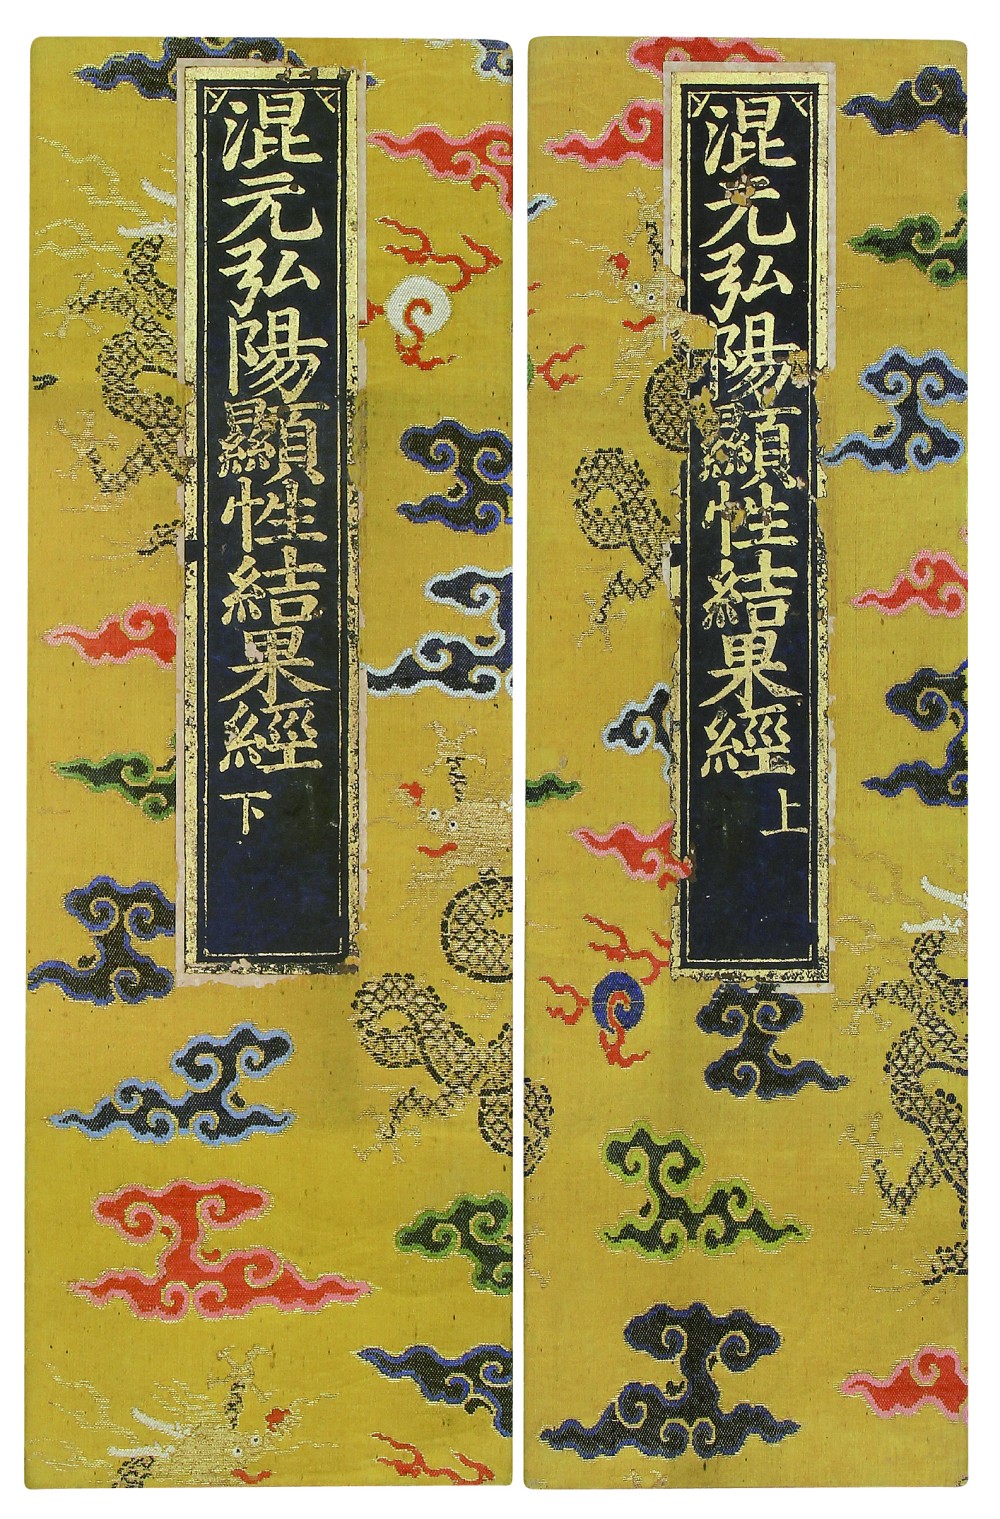 混元弘陽顯性結果經上
混元弘陽顯性結果經下